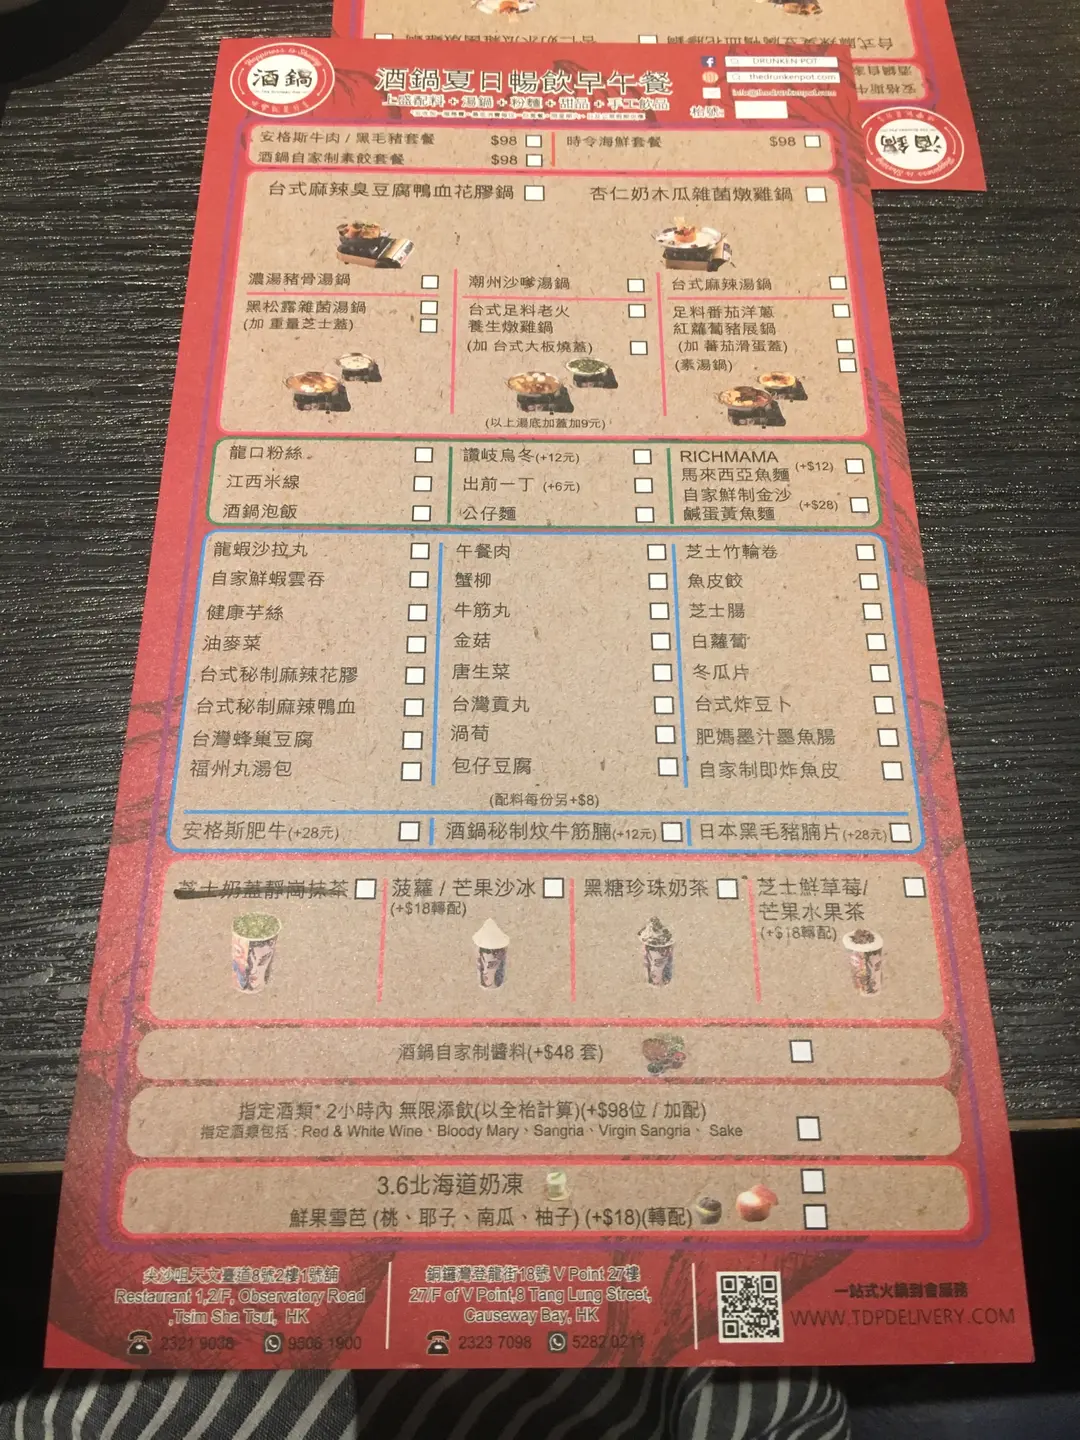 Happiness is Sharing
酒鍋
酒鍋夏日暢飲早午餐
上盛配料 + 湯鍋 + 粉麵 + 甜品 + 手工飲品
DRUNKEN POT
thedrunkenpot.com
info@thedrunkenpot.com
枱號:
安格斯牛肉 / 黑毛豬套餐 $98
時令海鮮套餐 $98
酒鍋自家制素餃套餐 $98
台式麻辣臭豆腐鴨血花膠鍋
杏仁奶木瓜雜菌燉雞鍋
濃湯豬骨湯鍋
潮州沙嗲湯鍋
台式麻辣湯鍋
黑松露雜菌湯鍋
(加 重量芝士蓋)
台式足料老火
養生燉雞鍋
(加 台式大板燒蓋)
足料番茄洋蔥
紅蘿蔔豬展鍋
(加 蕃茄滑蛋蓋)
(素湯鍋)
(以上湯底加蓋加9元)
龍口粉絲
讚岐烏冬(+12元)
RICHMAMA
馬來西亞魚麵 (+$12)
江西米線
出前一丁 (+6元)
自家鮮制金沙
鹹蛋黃魚麵 (+$28)
酒鍋泡飯
公仔麵
龍蝦沙拉丸
午餐肉
芝士竹輪卷
自家鮮蝦雲吞
蟹柳
魚皮餃
健康芋絲
牛筋丸
芝士腸
油麥菜
金菇
白蘿蔔
台式秘制麻辣花膠
唐生菜
冬瓜片
台式秘制麻辣鴨血
台灣貢丸
台式炸豆卜
台灣蜂巢豆腐
渦荀
肥媽墨汁墨魚腸
福州丸湯包
包仔豆腐
自家制即炸魚皮
(配料每份另+$8)
安格斯肥牛(+28元)
酒鍋秘制炆牛筋腩(+12元)
日本黑毛豬腩片(+28元)
芝士奶蓋靜崗抹茶
菠蘿 / 芒果沙冰
(+$18轉配)
黑糖珍珠奶茶
芝士鮮草莓/
芒果水果茶
(+$18轉配)
酒鍋自家制醬料(+$48 套)
指定酒類* 2小時內 無限添飲(以全枱計算)(+$98位 / 加配)
指定酒類包括 : Red & White Wine、Bloody Mary、Sangria、Virgin Sangria、 Sake
3.6北海道奶凍
鮮果雪芭 (桃、耶子、南瓜、柚子) (+$18)(轉配)
尖沙咀天文臺道8號2樓1號舖
Restaurant 1,2/F, Observatory Road
,Tsim Sha Tsui, HK
2321 9038 9506 1900
銅鑼灣登龍街18號 V Point 27樓
27/F of V Point,8 Tang Lung Street,
Causeway Bay, HK
2323 7098 5282 0211
一站式火鍋到會服務
WWW.TDPDELIVERY.COM